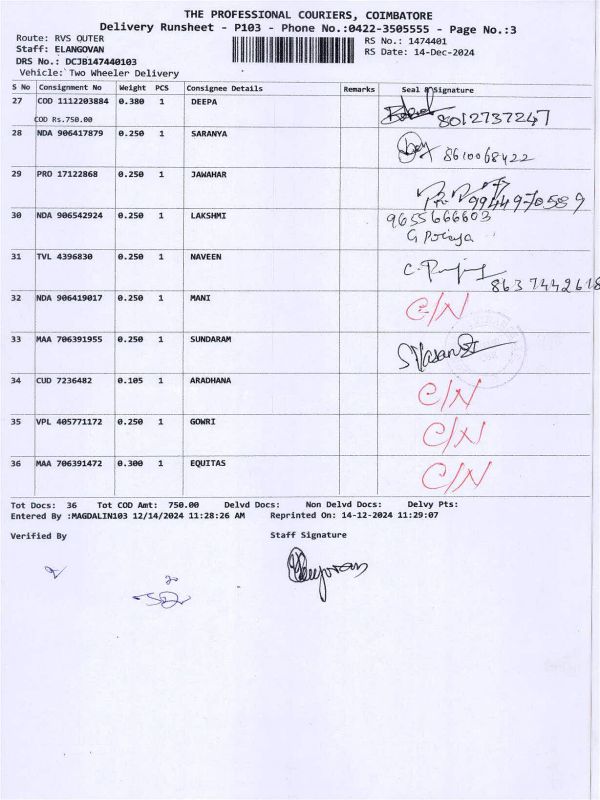 THE PROFESSIONAL COURIERS, COIMBATORE
Delivery Runsheet - P103 - Phone No.:0422-3505555 - Page No.:3
Route: RVS OUTER
RS No.: 1474401
Staff: ELANGOVAN
RS Date: 14-Dec-2024
DRS No.: DCJB147440103
Vehicle: Two Wheeler Delivery
S No Consignment No Weight PCS Consignee Details Remarks Seal & Signature
27 COD 1112203884 0.380 1 DEEPA 8012737247
COD Rs.750.00
28 NDA 906417879 0.250 1 SARANYA 8610068422
29 PRO 17122868 0.250 1 JAWAHAR 9944970589
30 NDA 906542924 0.250 1 LAKSHMI 9655666603
G Poriya
31 TVL 4396830 0.250 1 NAVEEN 8637442618
32 NDA 906419017 0.250 1 MANI C/N
33 MAA 706391955 0.250 1 SUNDARAM
34 CUD 7236482 0.105 1 ARADHANA C/N
35 VPL 405771172 0.250 1 GOWRI C/N
36 MAA 706391472 0.300 1 EQUITAS C/N
Tot Docs: 36 Tot COD Amt: 750.00 Delvd Docs: Non Delvd Docs: Delvy Pts:
Entered By :MAGDALIN103 12/14/2024 11:28:26 AM Reprinted On: 14-12-2024 11:29:07
Verified By Staff Signature